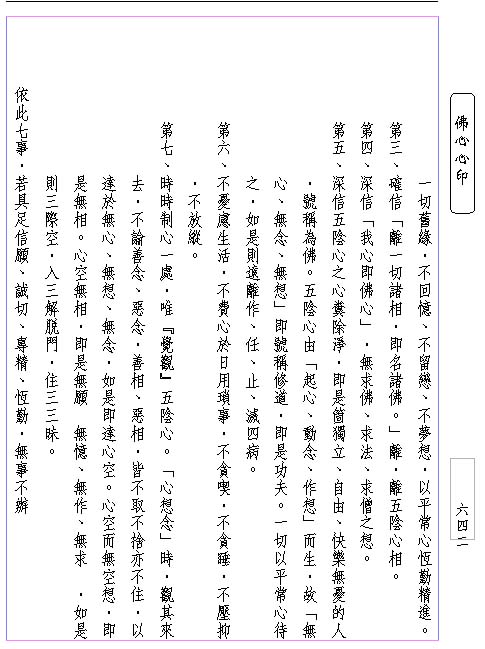 佛心心印
六四二
一切舊緣，不回憶、不留戀、不夢想，以平常心恆勤精進。
第三、確信「離一切諸相，即名諸佛。」離，離五陰心相。
第四、深信「我心即佛心」，無求佛、求法、求僧之想。
第五、深信五陰心之心糞除淨，即是箇獨立、自由、快樂無憂的人
，號稱為佛。五陰心由「起心、動念、作想」而生，故「無
心、無念、無想」即號稱修道，即是功夫。一切以平常心待
之，如是則遠離作、任、止、滅四病。
第六、不憂慮生活，不費心於日用瑣事，不貪喫，不貪睡，不壓抑
，不放縱。
第七、時時制心一處，唯『覺觀』五陰心。「心想念」時，觀其來
去，不論善念、惡念，善相、惡相，皆不取不捨亦不住，以
達於無心、無想、無念，如是即達心空。心空而無空想，即
是無相。心空無相，即是無願　無憶、無作、無求　，如是
則三際空，入三解脫門，住三三昧。
依此七事，若具足信願、誠切、專精、恆勤，無事不辦